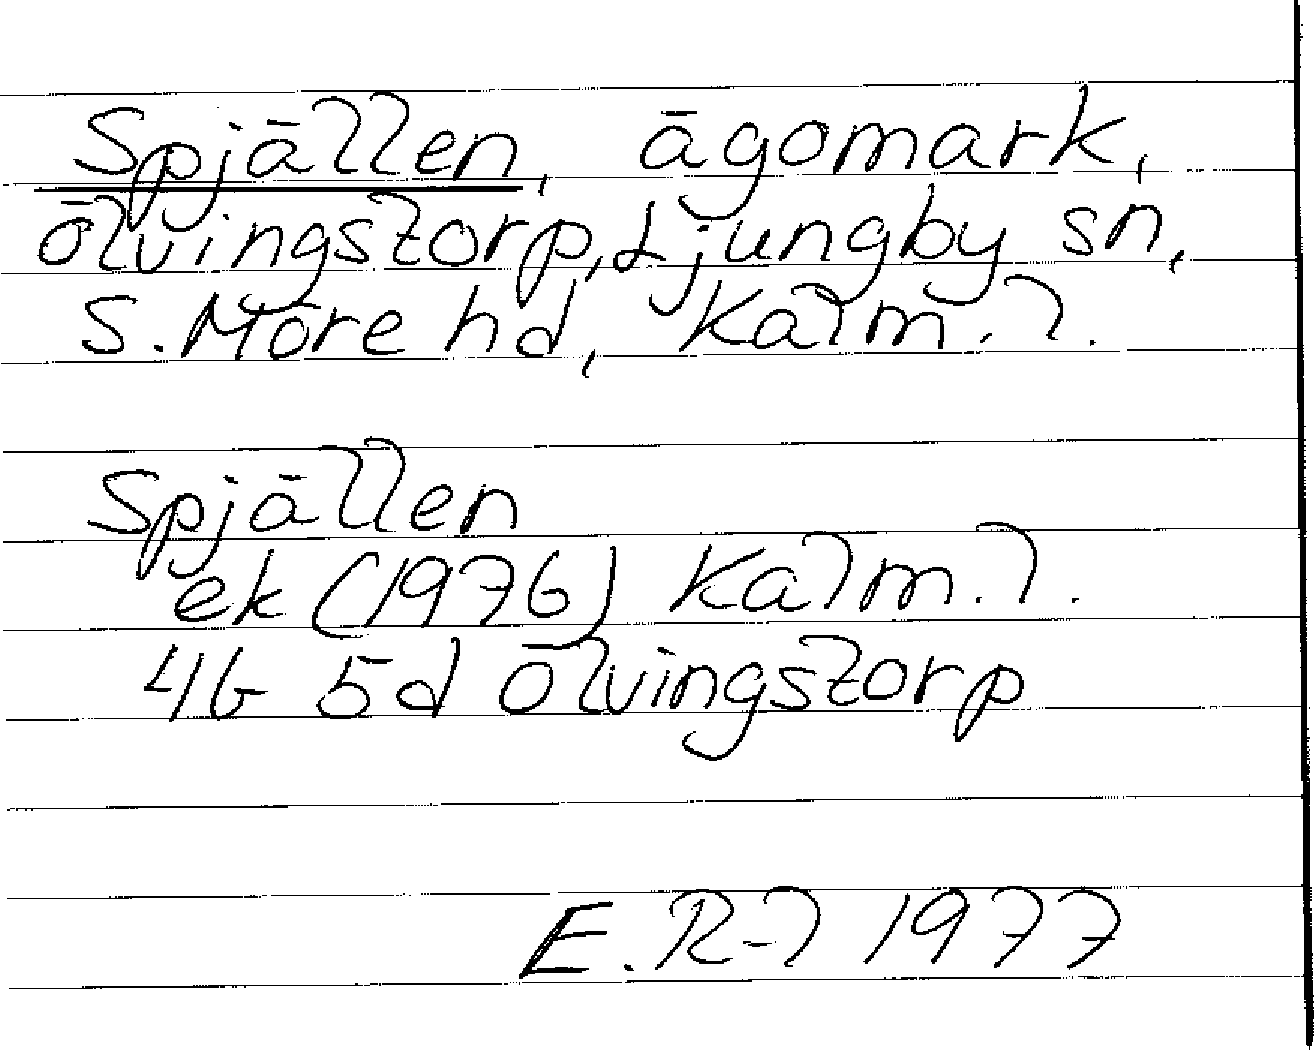 Spjällen, ägomark,
Ölvingstorp, Ljungby sn,
S. Möre hd, Kalm. l.
Spjällen
ek (1976) Kalm. l.
4G 5d Ölvingstorp
E. R-l 1977